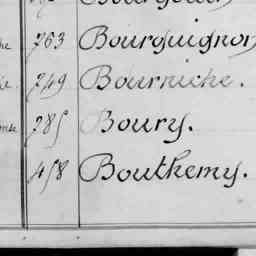 763 Bourguignon
749 Bourniche.
785 Boury.
458 Bouthemy.